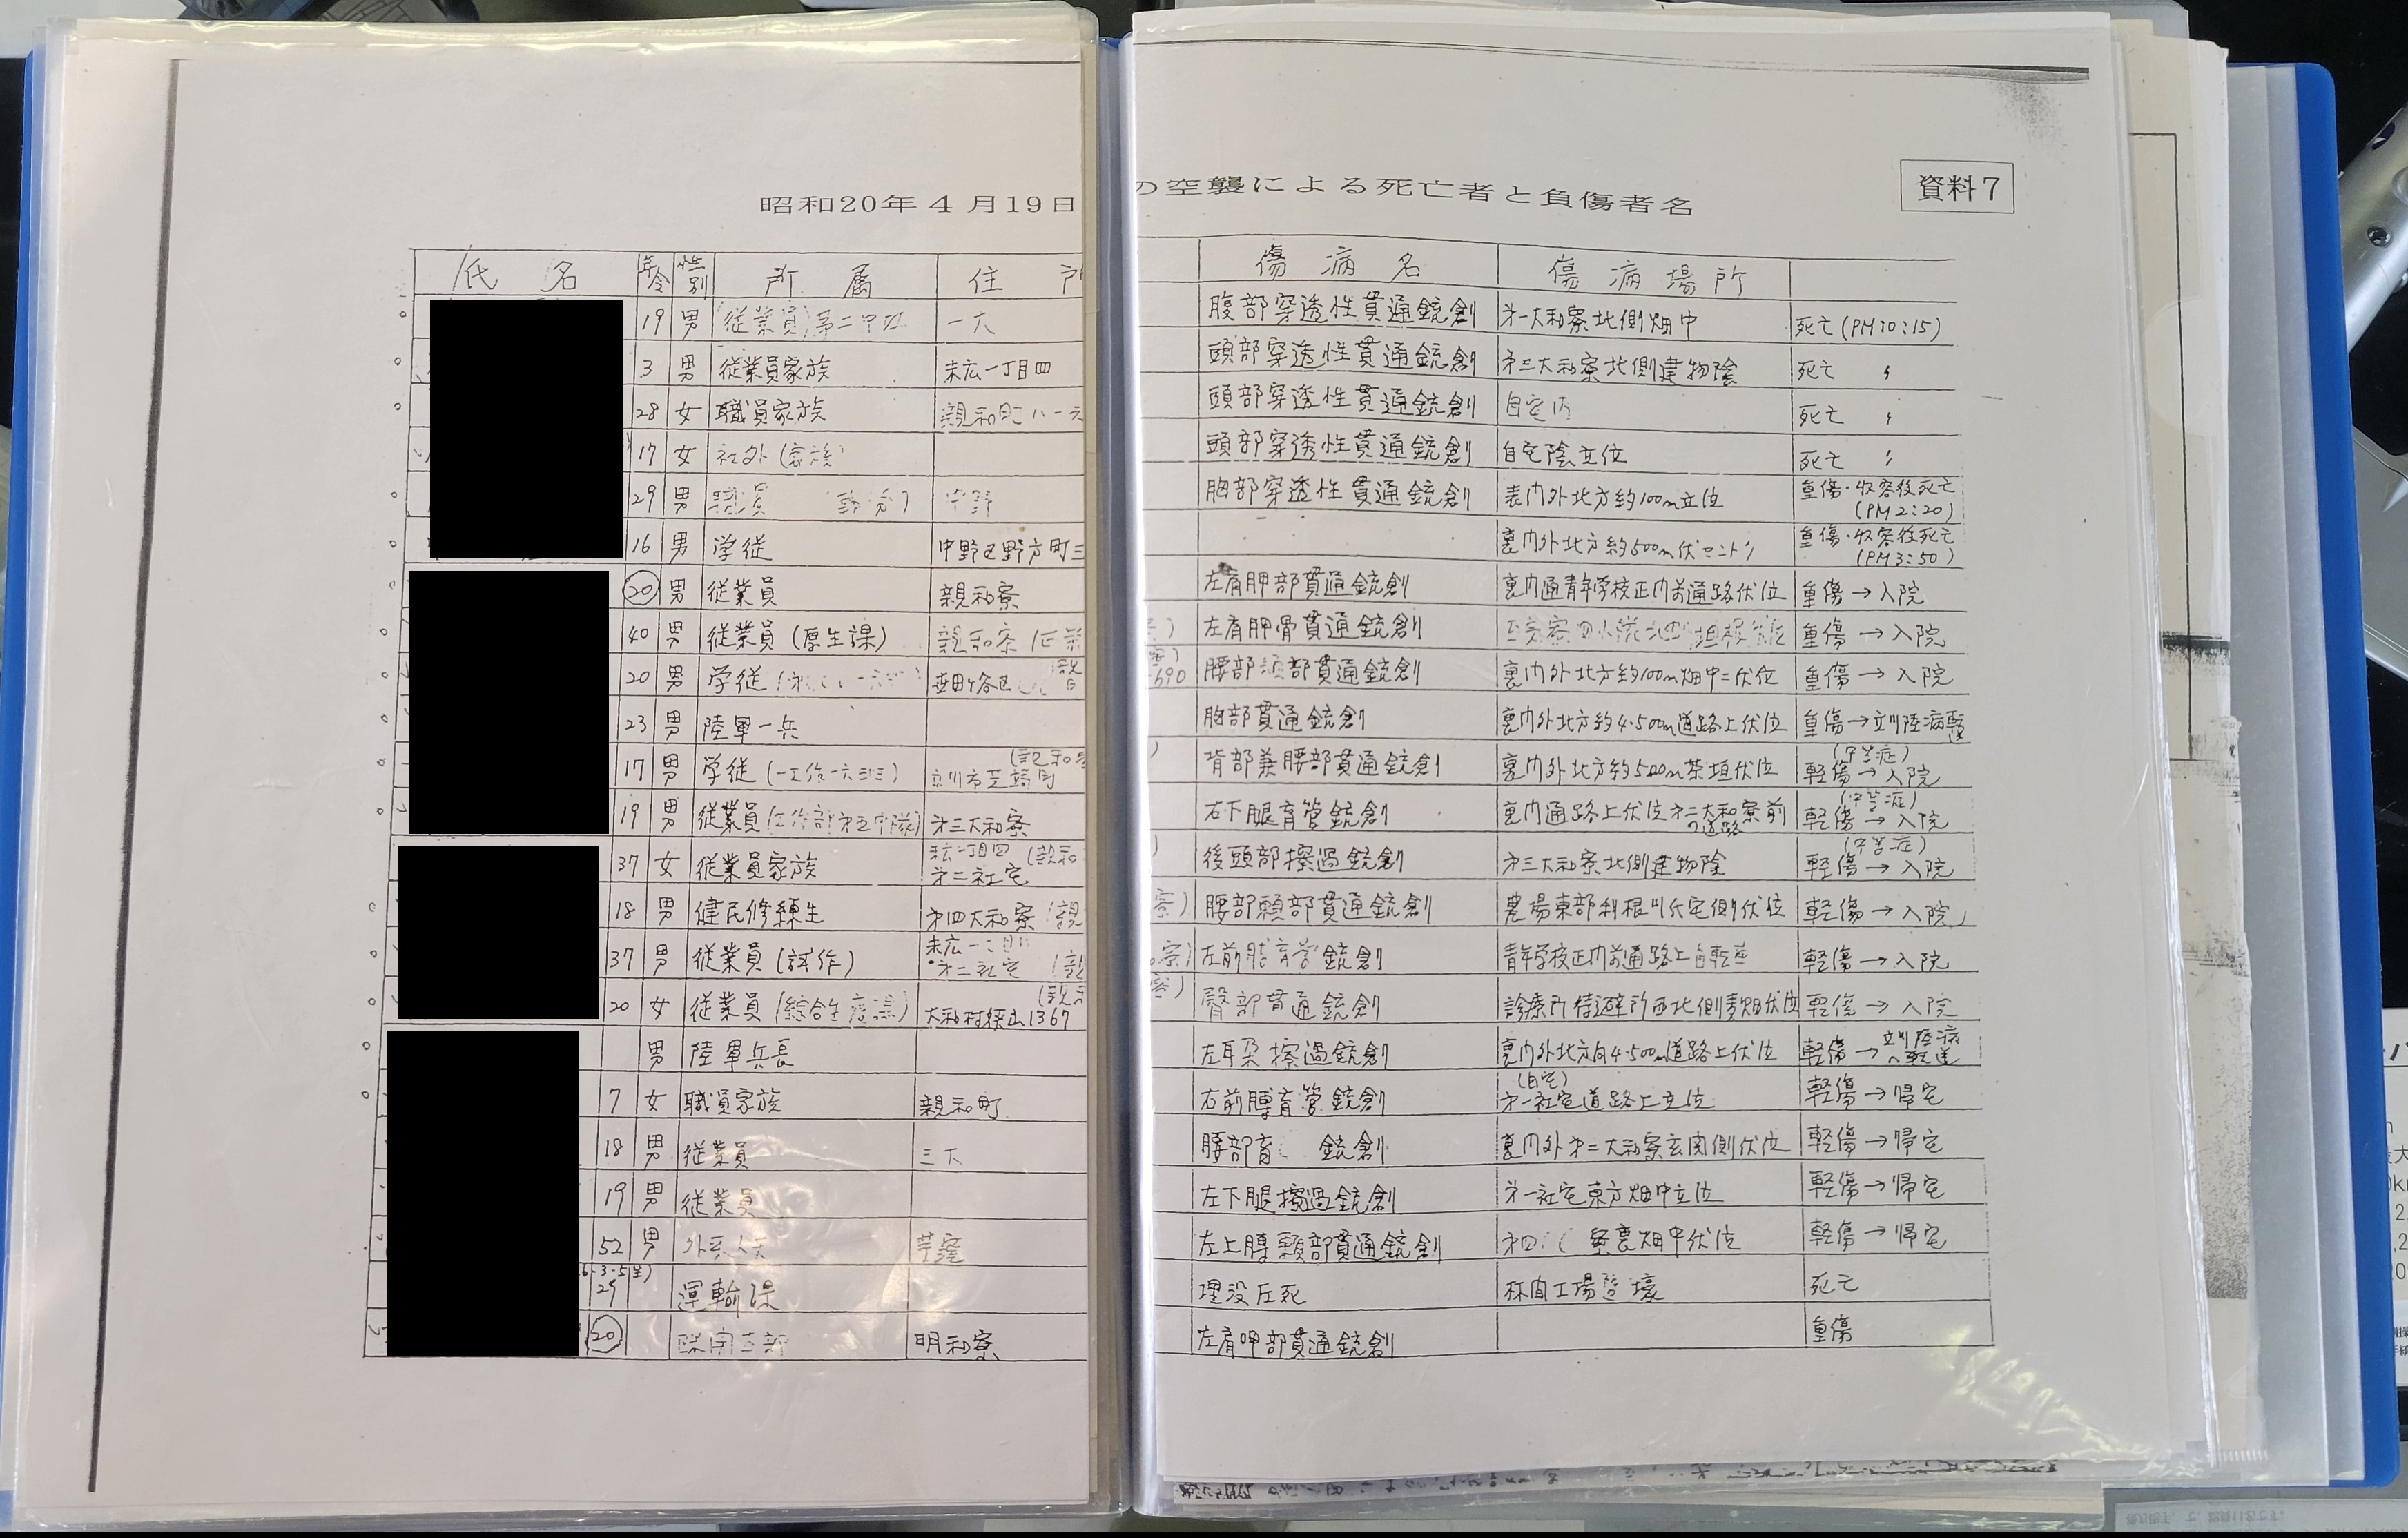 昭和20年4月19日の空襲による死亡者と負傷者名
資料7
氏名 年令 性別 所属 住所 傷病名 傷病場所
19 男 (従業員)第二中隊 一大 腹部穿透性貫通銃創 才一大和寮北側畑中 死亡(PM10:15)
3 男 従業員家族 末広一丁目四 頭部穿透性貫通銃創 才三大和寮北側建物陰 死亡 〃
28 女 職員家族 親和町八一 頭部穿透性貫通銃創 自宅内 死亡 〃
17 女 社外(家族) 頭部穿透性貫通銃創 自宅陰立位 死亡 〃
29 男 職員 中野 胸部穿透性貫通銃創 表门外北方約100m立位 重傷・収容後死亡(PM2:20)
16 男 学徒 中野区野方町三 裏门外北方約500m伏 重傷・収容後死亡(PM3:50)
20 男 従業員 親和寮 左肩胛部貫通銃創 裏门通青年学校正门前通路伏位 重傷→入院
40 男 従業員(厚生課) 親和寮 左肩胛骨貫通銃創 重傷→入院
20 男 学徒 690 腰部 部貫通銃創 裏门外北方約100m畑中ニ伏位 重傷→入院
23 男 陸軍一兵 胸部貫通銃創 裏门外北方約4.500m道路上伏位 重傷→立川陸病
17 男 学徒(一工作一六 立川市芝崎町 背部兼腰部貫通銃創 裏门外北方約500m茶垣伏位 (中等症) 軽傷→入院
19 男 従業員(工作部才五中隊) 才三大和寮 右下腿盲管銃創 裏门通路上伏位才二大和寮前の道路 (中等症) 軽傷→入院
37 女 従業員家族 末広一丁目四 才二社宅 後頭部擦過銃創 才三大和寮北側建物陰 (中等症) 軽傷→入院
18 男 健民修練生 才四大和寮 腰部頸部貫通銃創 農場東部利根川氏宅側伏位 軽傷→入院
37 男 従業員(試作) 末広一 才二社宅 左前膊盲管銃創 青年学校正门前通路上自転車 軽傷→入院
20 女 従業員(綜合生産課) 大和村狭山1367 臀部貫通銃創 診療所待避所西北側麦畑伏位 軽傷→入院
男 陸軍兵長 左耳朶擦過銃創 裏门外北方向4.500m道路上伏位 軽傷→立川陸病へ転送
7 女 職員家族 親和町 右前膊盲管銃創 (自宅) 才一社宅道路上立位 軽傷→帰宅
18 男 従業員 三大 腰部盲 銃創 裏门外才二大和寮玄関側伏位 軽傷→帰宅
19 男 従業員 左下腿擦過銃創 才一社宅東方畑中立位 軽傷→帰宅
52 男 芋窪 左上膊 部貫通銃創 才四 寮裏畑中伏位 軽傷→帰宅
6・3・5生) 29 運輸課 埋没圧死 林间工場 壕 死亡
20 明和寮 左肩胛部貫通銃創 重傷